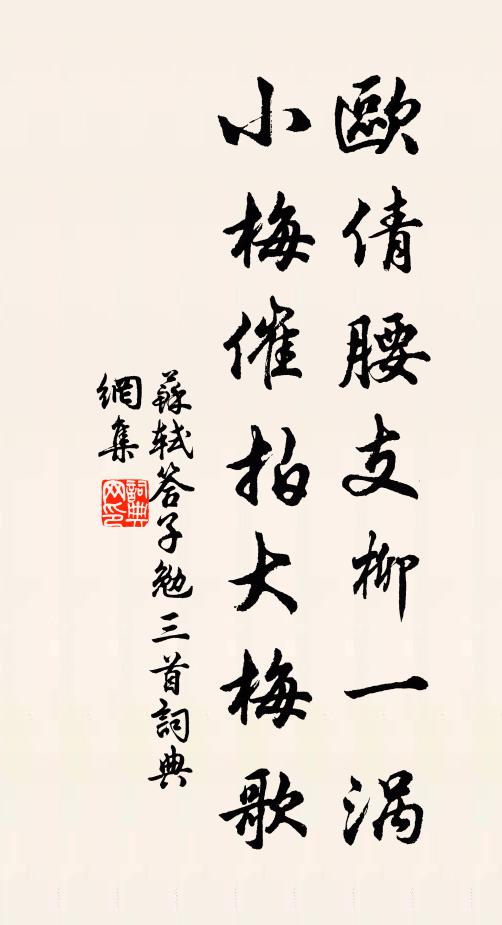 歐倩腰支柳一涡
小梅催拍大梅歌
蘇轼答子勉三首詞典
網集
詞典網印